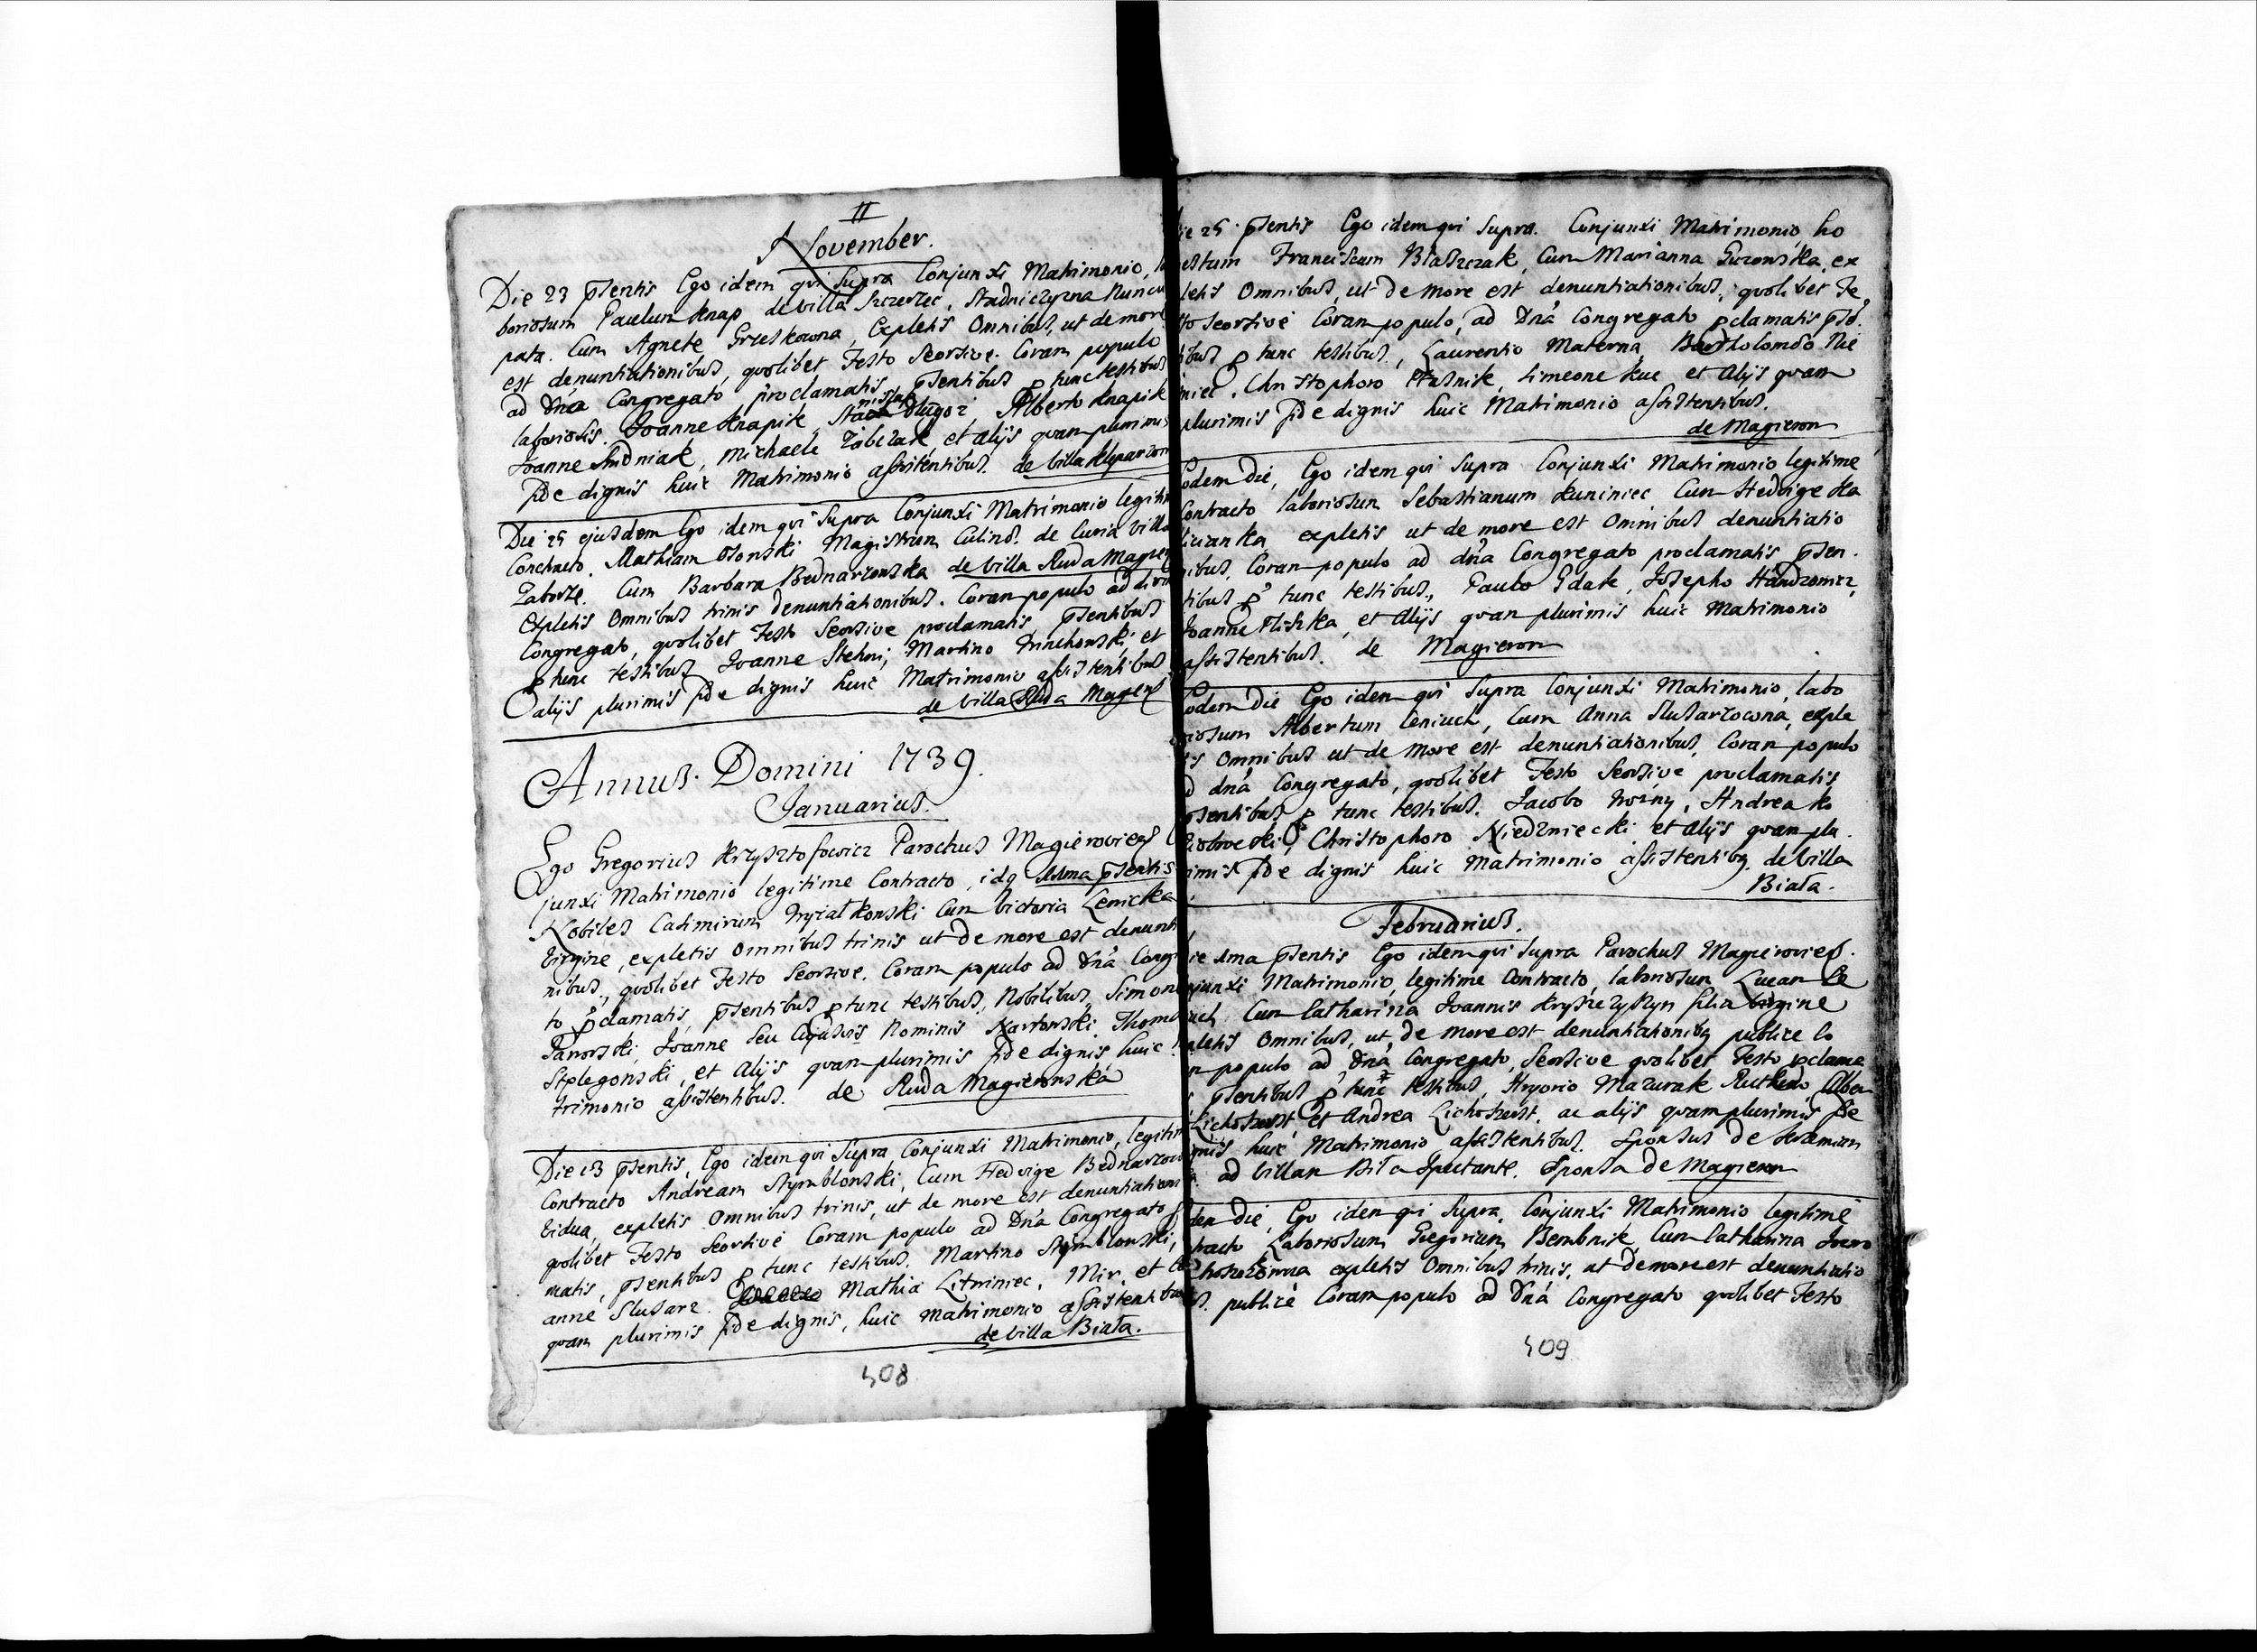 II
November.
Die 23 pſentis Ego idem qui Supra Conjunxi Matrimonio, la
boriosum Paulum Knap de villa Szczerzec, Stadniczyzna Nuncu
pata. Cum Agnete Grzeskowna, Expletis Omnibus, ut de more
est denuntiationibus, quolibet Festo Seorsive. Coram populo
ad Dna Congregato, proclamatis, pſentibus p tunc testibus
laboriosis. Joanne Knapik, Długoz Alberto Knapik
Joanne Studniak, Michaele Zabczak, et alijs quam plurimis
fide dignis huic Matrimonio aſsistentibus. de villa
Die 25 ejusdem Ego idem qui Supra Conjunxi Matrimonio legitim
Contracto. Mathiam Magistrum Culina. de Curia villa
Zaborze. Cum Barbara Bednarzowska de villa Ruda Magier
Expletis Omnibus trinis denuntiationibus. Coram populo ad divin
Congregato, quolibet Festo Seorsive proclamatis, pſentibus
p tunc testibus Joanne Martino et
alijs plurimis fide dignis huic Matrimonio aſsistentibus
de villa Ruda Magierſ
Annus Domini 1739.
Januarius.
Ego Gregorius Krzysztofowicz Parochus Magierovienſ
junxi Matrimonio legitime Contracto, idq pſentis
Nobiles Casimirum Cum Victoria Lenicka
Virgine, expletis omnibus trinis ut de more est denunti
nibus, quolibet Festo Seorsive. Coram populo ad Dna Congr
to pclamatis, pſentibus p tunc testibus, Nobilibus, Simone
Joanne Seu Nominis Thoma
et Alijs quam plurimis fide dignis huic
trimonio aſsistentibus. de Ruda Magierowska
Die 13 pſentis, Ego idem qui Supra Conjunxi Matrimonio, legitim
Contracto Andream Stymblowski, Cum Hedvige Bednarzow
Vidua, expletis Omnibus trinis, ut de more est denuntiation
quolibet Festo Seorsive Coram populo ad Dna Congregato
matis, pſentibus p tunc testibus. Martino Stymblowski,
anne Slusarz. Mathia Litwiniec, et
quam plurimis fide dignis, huic matrimonio aſsistentibus
de villa Biała.
408
ie 25 pſentis Ego idem qui Supra. Conjunxi Matrimonio, ho
estum Franciscum Błaszczak, Cum Marianna Guzowska, ex
letis Omnibus, ut de more est denuntiationibus, quolibet Fe
sto Seorsive Coram populo, ad Dna Congregato pclamatis pſe
tibus p tunc testibus, Laurentio Materna, Bartholomæo Nie
miec, Christophoro Ptasnik, Simeone Kuc et Alijs quam
plurimis fide dignis huic Matrimonio aſsistentibus.
de Magierow
odem Die, Ego idem qui Supra Conjunxi Matrimonio legitime
Contracto laboriosum Sebastianum Kuniniec Cum Hedvige Ka
expletis ut de more est Omnibus denuntiatio
nibus, Coram populo ad dna Congregato proclamatis pſen
tibus p tunc testibus, Paulo Gdak, Josepho
Joanne et Alijs quam plurimis huic Matrimonio
aſsistentibus. de Magierow
odem Die Ego idem qui Supra Conjunxi Matrimonio, labo
riosum Albertum Ceniuch, Cum Anna Slusarzowna, exple
is Omnibus ut de more est denuntiationibus, Coram populo
d dna Congregato, quolibet Festo Seorsive proclamatis
pſentibus p tunc testibus. Jacobo Andrea
Christophoro Niedzwiecki et alijs quam plu
imis fide dignis huic matrimonio aſsistentibq. de villa
Biała.
Februarius.
ie 1ma pſentis Ego idem qui Supra Parochus Magierovienſ.
njunxi Matrimonio, legitime Contracto, laboriosum Lucam Ce
uch Cum Catharina Joannis Krysztzyszyn filia virgine
pletis Omnibus, ut de more est denuntiationibq publice Co
m populo ad Dna Congregato, Seorsive quolibet Festo pclama
s pſentibus p tunc testibus, Hryorio Mazurak Rutheno, Alber
et Andrea ac alijs quam plurimis fide
gnis huic Matrimonio aſsistentibus. Sponsus de
ad villam Spectante. Sponsa de Magierow
dem Die, Ego idem qui Supra, Conjunxi Matrimonio legitime
tracto Laboriosum Gregorium Bembnik, Cum Catharina
expletis Omnibus trinis, ut de more est denuntiatio
s. publice Coram populo ad Dna Congregato quolibet Festo
409